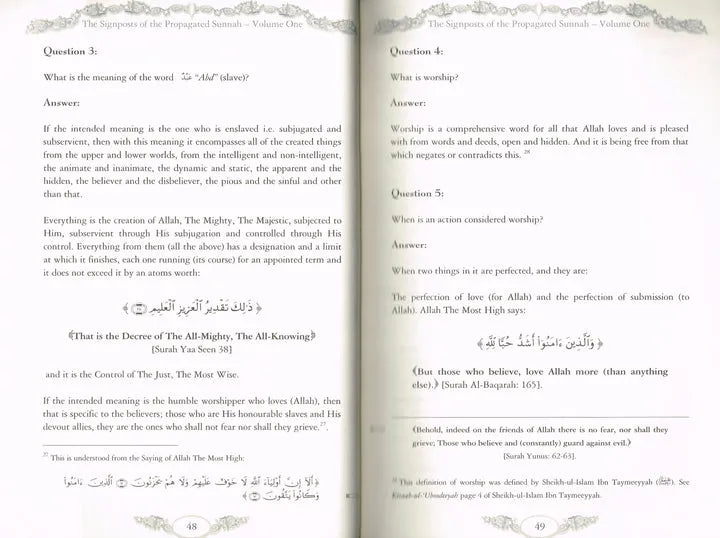 The Signposts of the Propagated Sunnah – Volume One
Question 3:
What is the meaning of the word عَبْدٌ “Abd” (slave)?
Answer:
If the intended meaning is the one who is enslaved i.e. subjugated and
subservient, then with this meaning it encompasses all of the created things
from the upper and lower worlds, from the intelligent and non-intelligent,
the animate and inanimate, the dynamic and static, the apparent and the
hidden, the believer and the disbeliever, the pious and the sinful and other
than that.
Everything is the creation of Allah, The Mighty, The Majestic, subjected to
Him, subservient through His subjugation and controlled through His
control. Everything from them (all the above) has a designation and a limit
at which it finishes, each one running (its course) for an appointed term and
it does not exceed it by an atoms worth:
﴿ ذَٰلِكَ تَقْدِيرُ ٱلْعَزِيزِ ٱلْعَلِيمِ ﴾
﴾That is the Decree of The All-Mighty, The All-Knowing﴿
[Surah Yaa Seen 38]
and it is the Control of The Just, The Most Wise.
If the intended meaning is the humble worshipper who loves (Allah), then
that is specific to the believers; those who are His honourable slaves and His
devout allies, they are the ones who shall not fear nor shall they grieve.27.
27 This is understood from the Saying of Allah The Most High:
﴿أَلَآ إِنَّ أَوْلِيَآءَ ٱللَّهِ لَا خَوْفٌ عَلَيْهِمْ وَلَا هُمْ يَحْزَنُونَ ٱلَّذِينَ ءَامَنُوا۟
وَكَانُوا۟ يَتَّقُونَ ﴾
48
The Signposts of the Propagated Sunnah – Volume One
Question 4:
What is worship?
Answer:
Worship is a comprehensive word for all that Allah loves and is pleased
with from words and deeds, open and hidden. And it is being free from that
which negates or contradicts this. 28
Question 5:
When is an action considered worship?
Answer:
When two things in it are perfected, and they are:
The perfection of love (for Allah) and the perfection of submission (to
Allah). Allah The Most High says:
﴿ وَٱلَّذِينَ ءَامَنُوٓا۟ أَشَدُّ حُبًّا لِّلَّهِ ﴾
﴾But those who believe, love Allah more (than anything
else).﴿ [Surah Al-Baqarah: 165].
﴾Behold, indeed on the friends of Allah there is no fear, nor shall they
grieve; Those who believe and (constantly) guard against evil.﴿
[Surah Yunus: 62-63].
28 This definition of worship was defined by Sheikh-ul-Islam Ibn Taymeeyyah. See
Kitaab-ul-'Uboodeyah page 4 of Sheikh-ul-Islam Ibn Taymeeyyah.
49